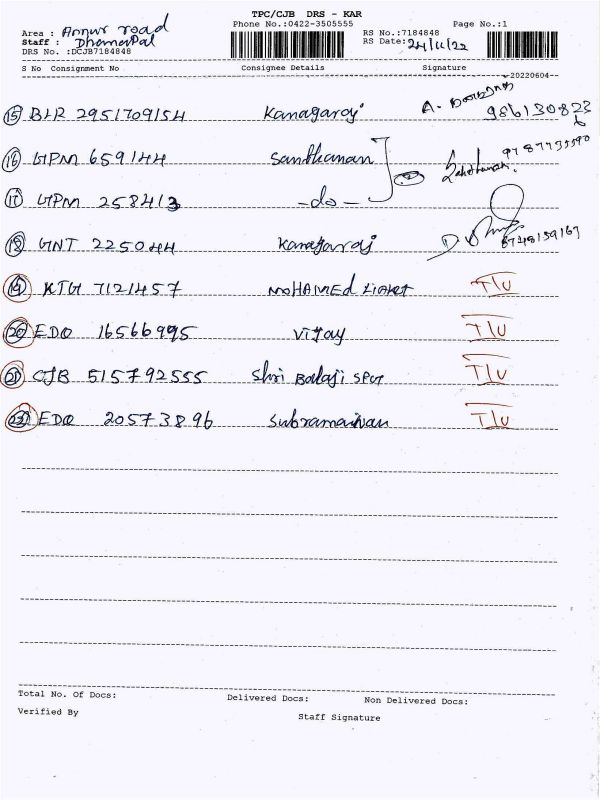 TPC/CJB DRS - KAR
Phone No.:0422-3505555 Page No.:1
Area : Annur road
Staff : DhermaPal
DRS No. :DCJB7184848
RS No.:7184848
RS Date: 24/11/22
S No Consignment No Consignee Details Signature
20220604
15 BLR 2951709154 Kanagaraj A.
16 GPM 659144 Sandhanan
17 GPM 258413 -do-
18 GNT 225044 Kanagaraj 8748159167
19 KTG 7121457 MOHAMEd LIAKET T/U
20 EDQ 16566995 Vijay T/U
21 CJB 515792555 Shri Balaji SPCT T/U
22 EDQ 20573896 Subramanian T/U
Total No. Of Docs: Delivered Docs: Non Delivered Docs:
Verified By Staff Signature